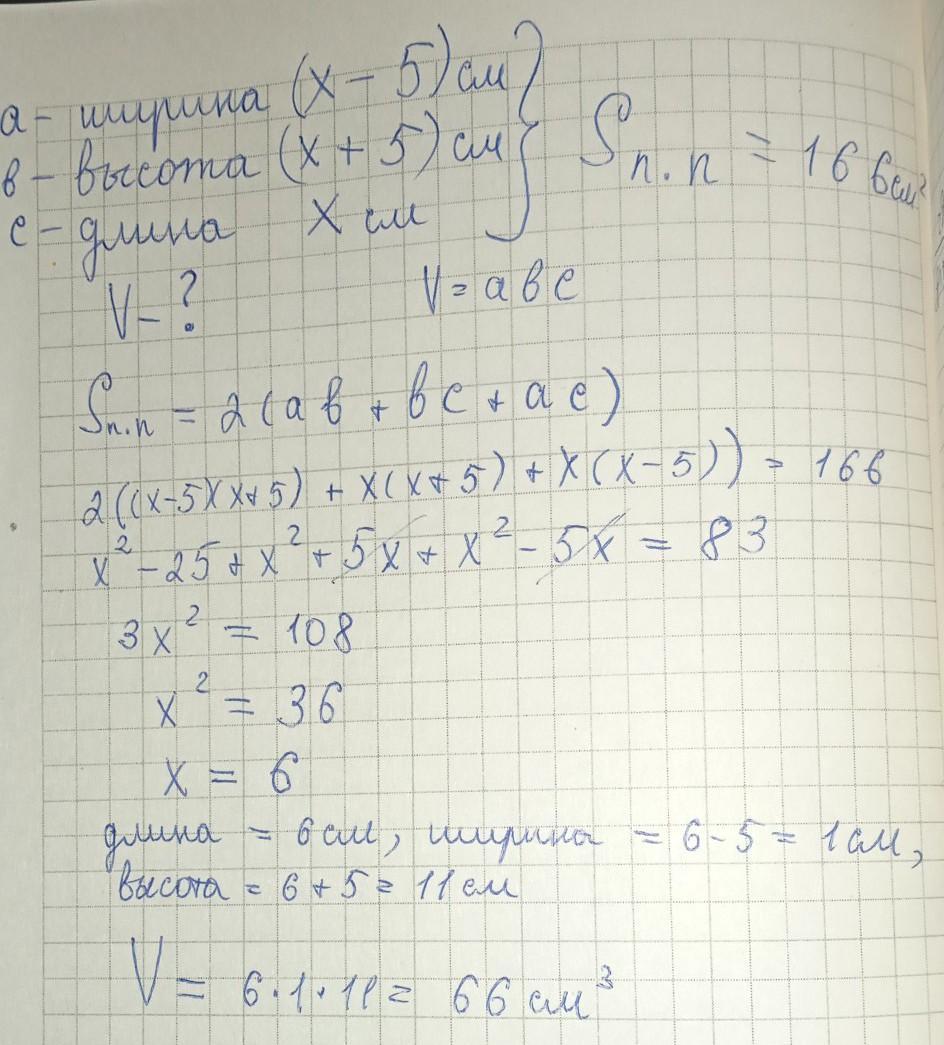 а - ширина (x - 5) см
в - высота (x + 5) см
с - длина x см
Sп.п = 166 см²
V - ? V = авс
Sп.п = 2(ав + вс + ас)
2((x-5)(x+5) + x(x+5) + x(x-5)) = 166
x² - 25 + x² + 5x + x² - 5x = 83
3x² = 108
x² = 36
x = 6
длина = 6 см, ширина = 6 - 5 = 1 см,
высота = 6 + 5 = 11 см
V = 6 · 1 · 11 = 66 см³